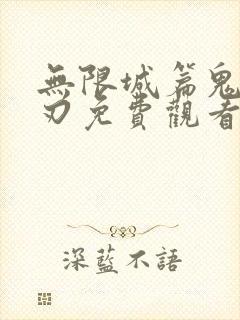 無限城篇鬼
刃免費觀看
深藍不語